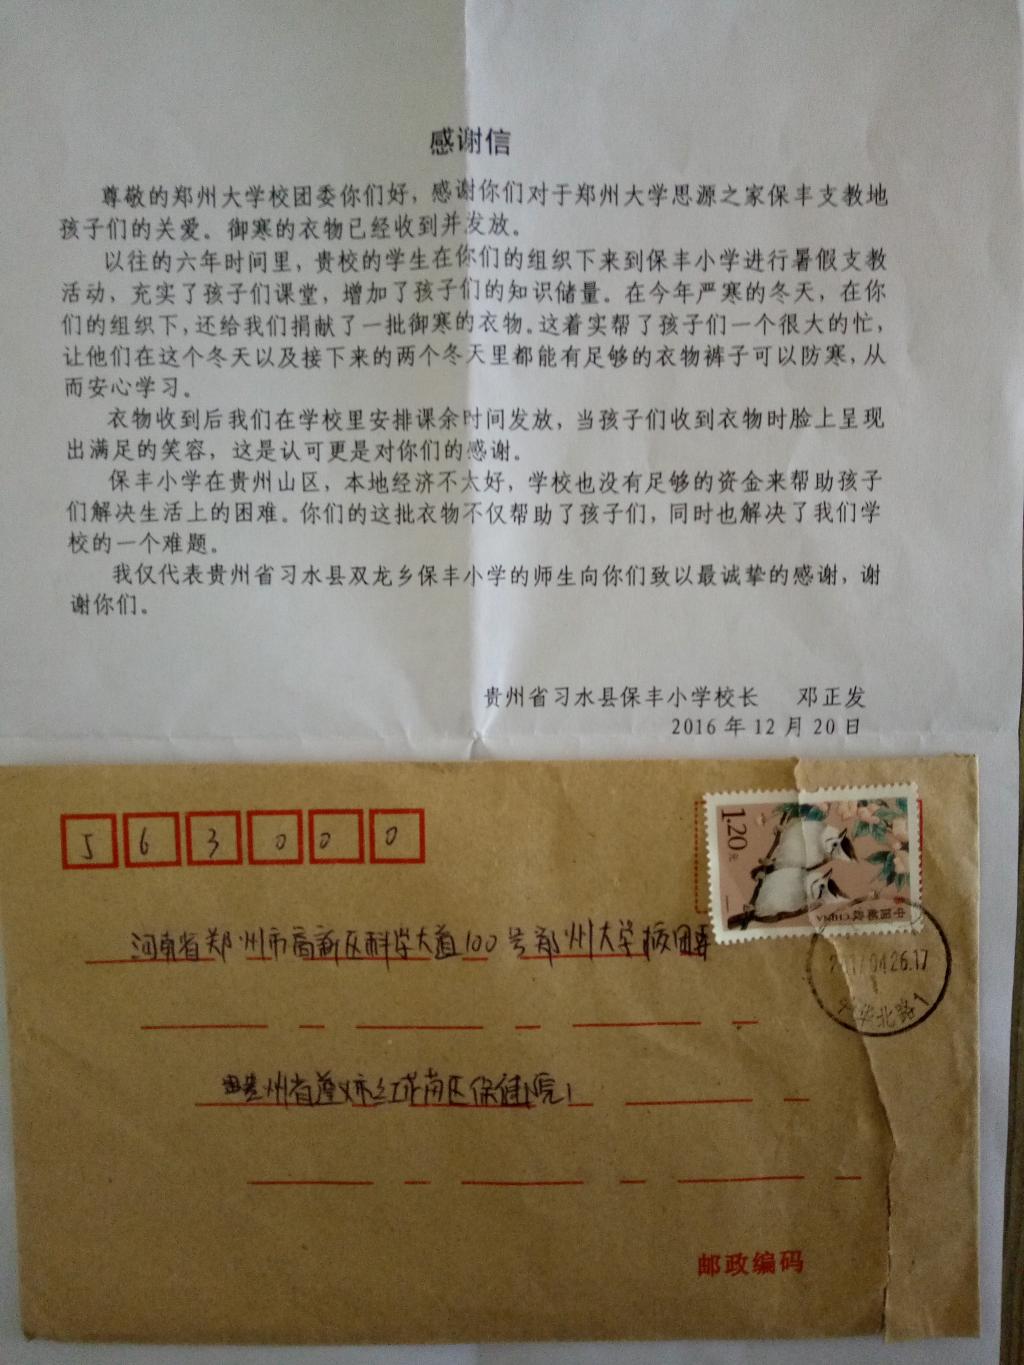 感谢信
尊敬的郑州大学校团委你们好，感谢你们对于郑州大学思源之家保丰支教地
孩子们的关爱。御寒的衣物已经收到并发放。
以往的六年时间里，贵校的学生在你们的组织下来到保丰小学进行暑假支教
活动，充实了孩子们课堂，增加了孩子们的知识储量。在今年严寒的冬天，在你
们的组织下，还给我们捐献了一批御寒的衣物。这着实帮了孩子们一个很大的忙，
让他们在这个冬天以及接下来的两个冬天里都能有足够的衣物裤子可以防寒，从
而安心学习。
衣物收到后我们在学校里安排课余时间发放，当孩子们收到衣物时脸上呈现
出满足的笑容，这是认可更是对你们的感谢。
保丰小学在贵州山区，本地经济不太好，学校也没有足够的资金来帮助孩子
们解决生活上的困难。你们的这批衣物不仅帮助了孩子们，同时也解决了我们学
校的一个难题。
我仅代表贵州省习水县双龙乡保丰小学的师生向你们致以最诚挚的感谢，谢
谢你们。
贵州省习水县保丰小学校长 邓正发
2016 年 12 月 20 日
563000
1.20元
中国邮政 CHINA
河南省郑州市高新区科学大道100号郑州大学校团委
04.26.17
华北路1
贵州省遵义市红花岗区保健院1
邮政编码